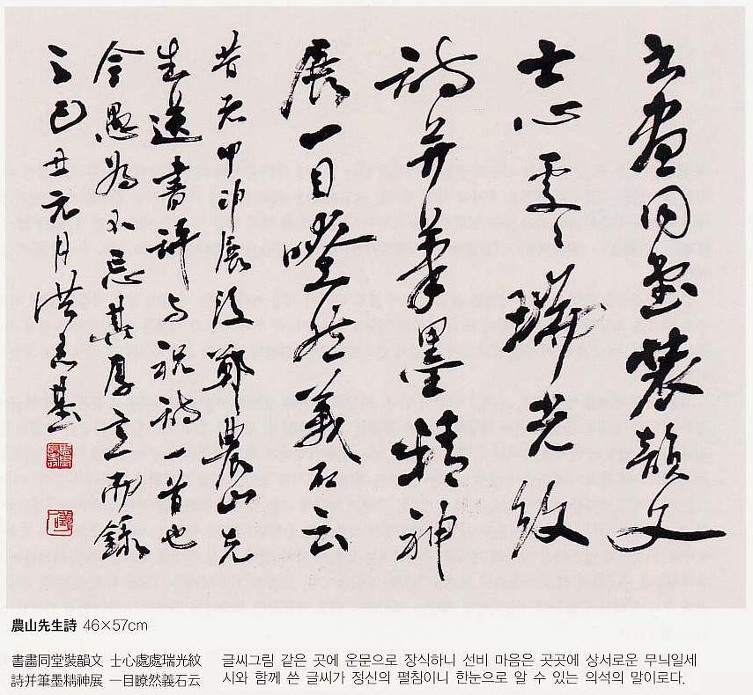 書畫同堂裝韻文
士心處々瑞光紋
詩并筆墨精神
展一目瞭然義石云
昔 甲申展後鄭農山先
生送書評与祝詩一首也
今愚為不忘其厚意而錄
之己丑元月洪 基
農山先生詩 46×57cm
書畫同堂裝韻文 士心處處瑞光紋
詩并筆墨精神展 一目瞭然義石云
글씨그림 같은 곳에 운문으로 장식하니 선비 마음은 곳곳에 상서로운 무늬일세
시와 함께 쓴 글씨가 정신의 펼침이니 한눈으로 알 수 있는 의석의 말이로다.